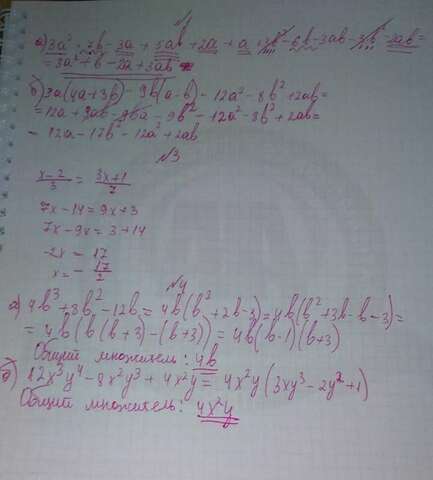 №1
а) 3a² + 7b - 3a + 5ab + 2a + a + 3b² - 6b - 3ab - 3b² - 2ab =
= 3a² + b - 2a + 3ab
б) 3a(4a+3b) - 9b(a-b) - 12a² - 8b² + 2ab =
= 12a + 9ab - 9ba - 9b² - 12a² - 8b² + 2ab =
- 12a - 17b² - 12a² + 2ab
№3
x-2/3 = 3x+1/7
7x - 14 = 9x + 3
7x - 9x = 3 + 14
-2x = 17
x = - 17/2
№4
а) 4b³ + 8b² - 12b = 4b(b² + 2b - 3) = 4b(b² + 3b - b - 3) =
= 4b(b(b+3) - (b+3)) = 4b(b-1)(b+3)
Общий множитель: 4b
б) 12x³y⁴ - 8x²y³ + 4x²y = 4x²y(3xy³ - 2y² + 1)
Общий множитель: 4x²y